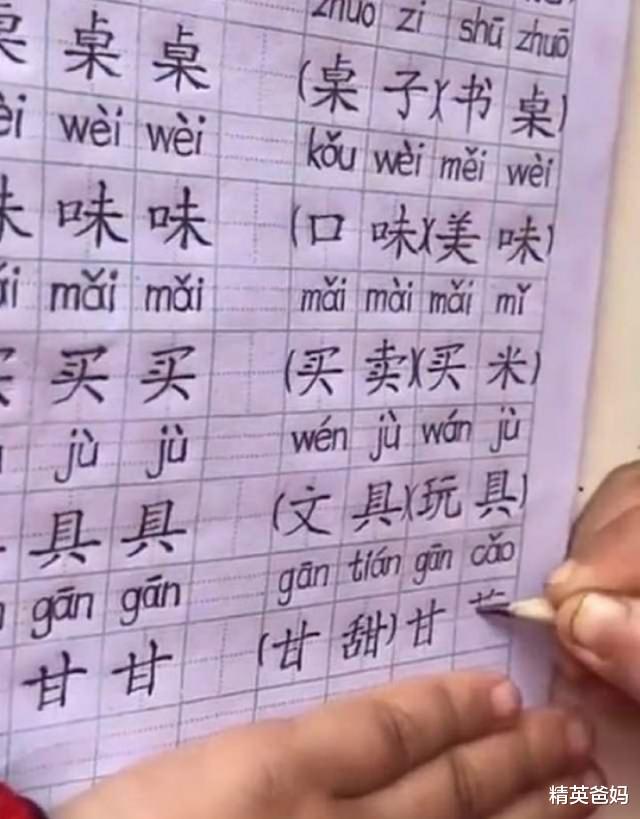 zhuo zi shū zhuō
桌 桌 (桌 子)(书 桌)
wèi wèi kǒu wèi měi wèi
味 味 (口 味)(美 味)
mǎi mǎi mǎi mài mǎi mǐ
买 买 (买 卖)(买 米)
jù jù wén jù wán jù
具 具 (文 具)(玩 具)
gān gān gān tián gān cǎo
甘 甘 (甘 甜) 甘
精英爸妈